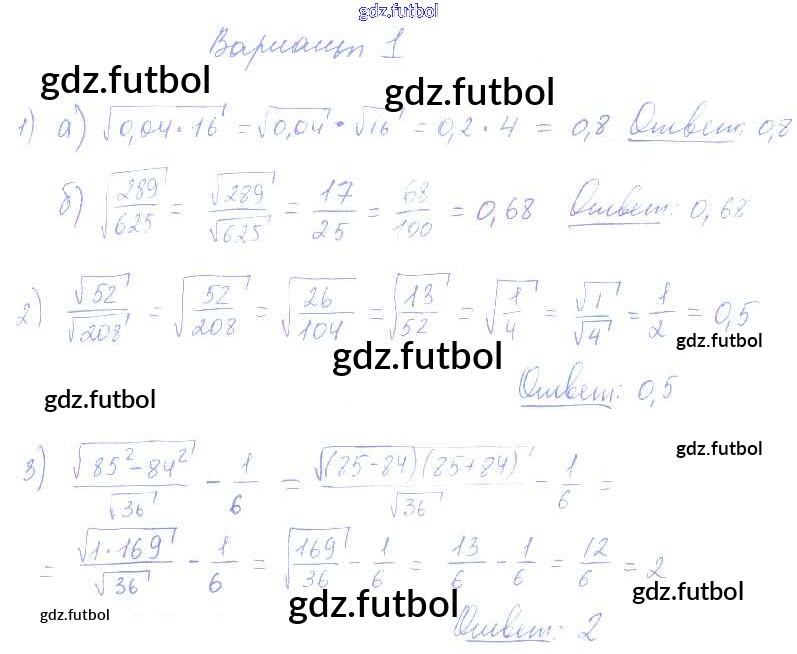 gdz.futbol
Вариант 1
gdz.futbol
gdz.futbol
1) а) √(0,04 · 16) = √0,04 · √16 = 0,2 · 4 = 0,8 Ответ: 0,8
б) √(289/625) = √289/√625 = 17/25 = 68/100 = 0,68 Ответ: 0,68
2) √52/√208 = √(52/208) = √(26/104) = √(13/52) = √(1/4) = √1/√4 = 1/2 = 0,5
gdz.futbol
gdz.futbol
gdz.futbol
Ответ: 0,5
gdz.futbol
3) √(85² − 84²)/√36 − 1/6 = √((85 − 84)(85 + 84))/√36 − 1/6 =
= √(1 · 169)/√36 − 1/6 = √(169/36) − 1/6 = 13/6 − 1/6 = 12/6 = 2
gdz.futbol
gdz.futbol
gdz.futbol
Ответ: 2